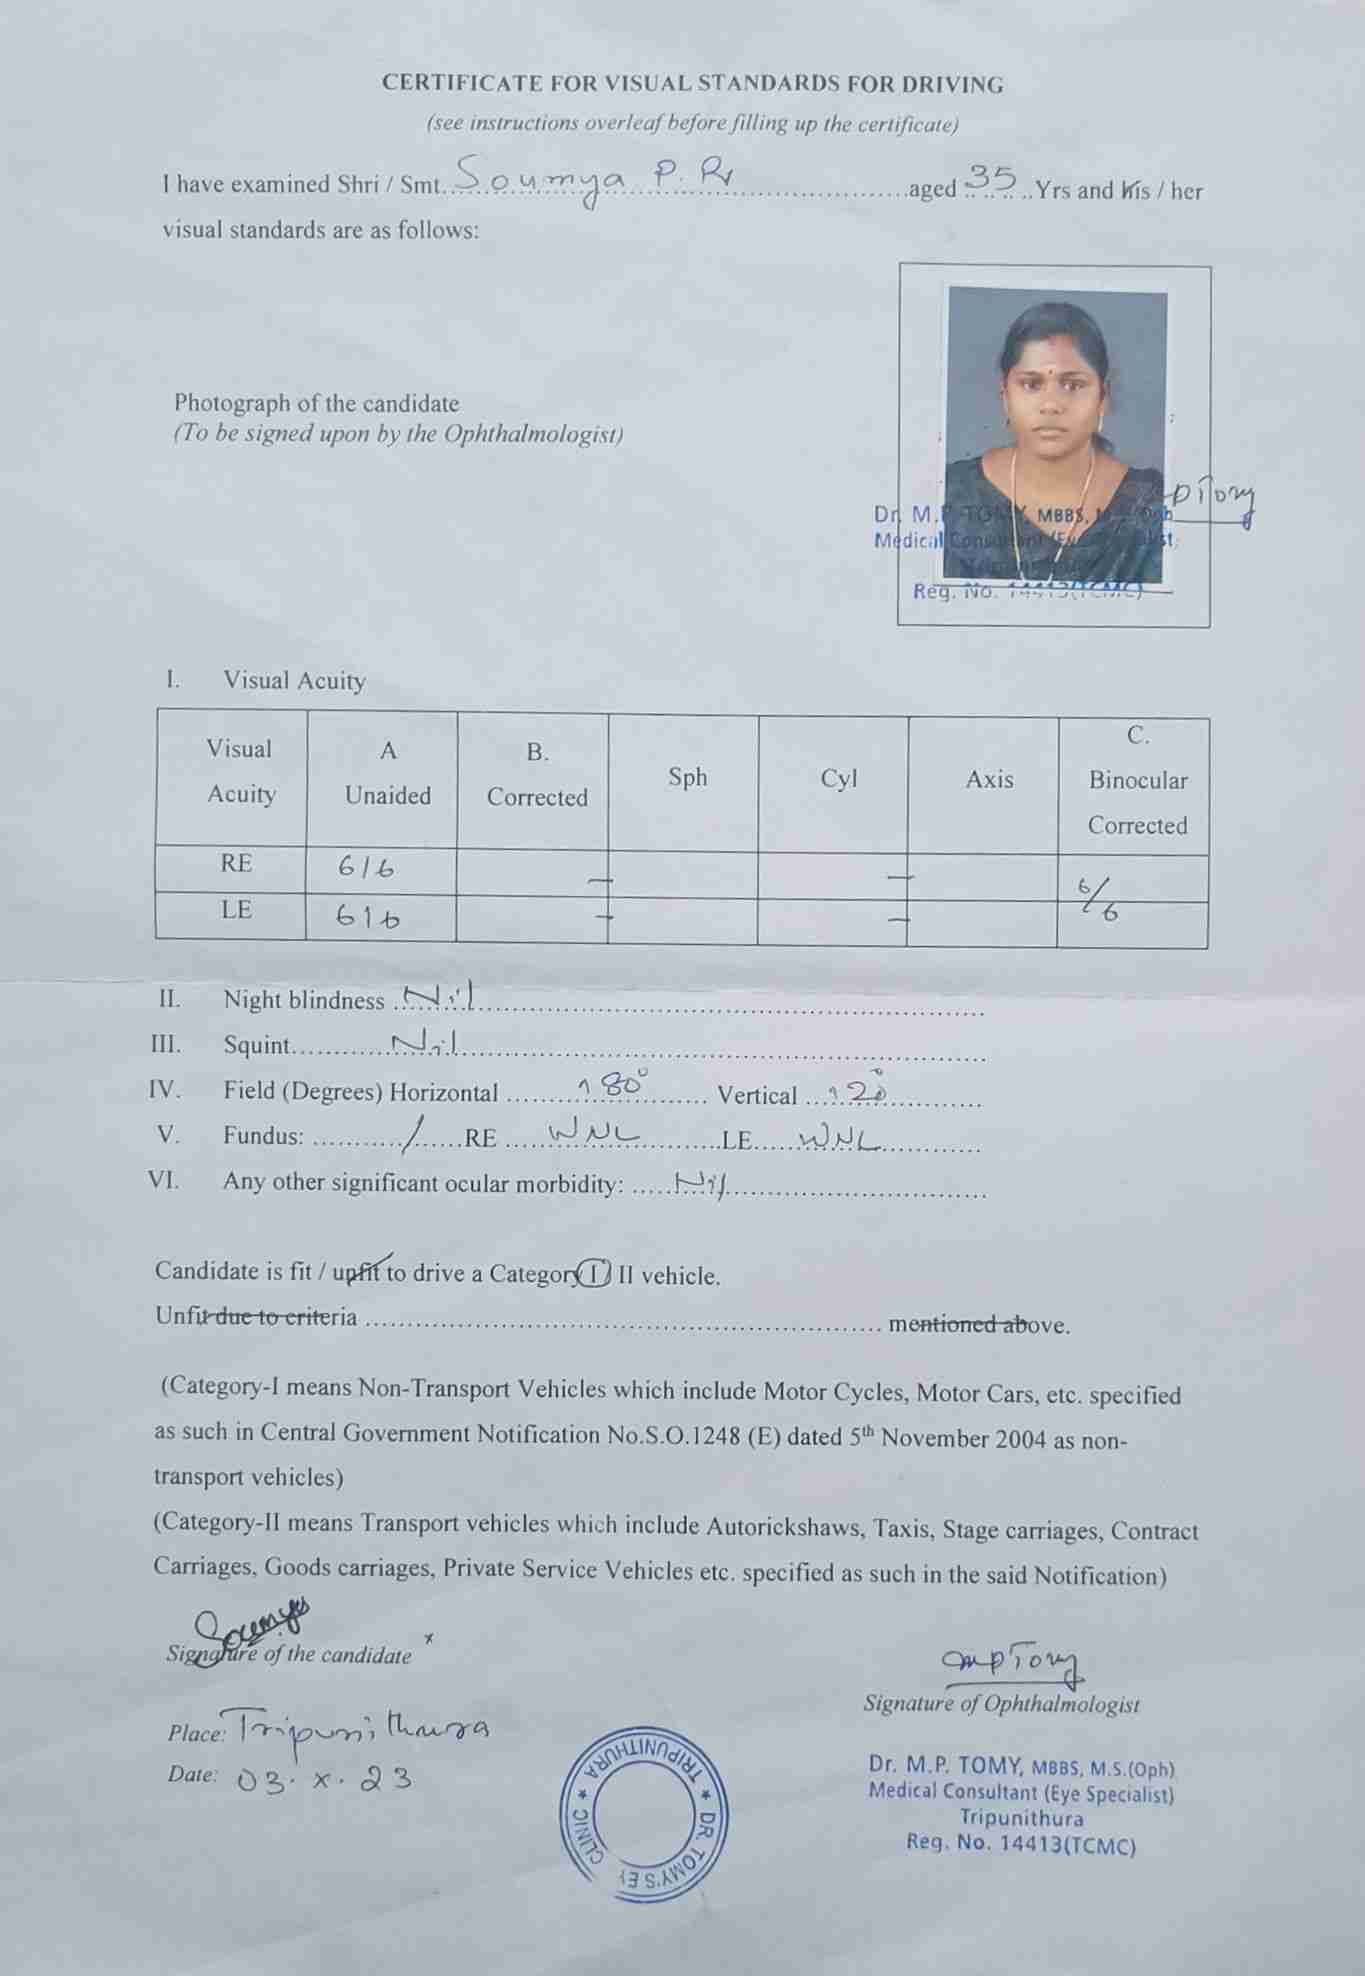 CERTIFICATE FOR VISUAL STANDARDS FOR DRIVING
(see instructions overleaf before filling up the certificate)
I have examined Shri / Smt. Soumya P. R. aged 35 Yrs and his / her
visual standards are as follows:
Photograph of the candidate
(To be signed upon by the Ophthalmologist)
mpTomy
Dr. M.P. TOMY, MBBS,
Medical Consultant (Eye Specialist)
Reg. No. 14413(TCMC)
I. Visual Acuity
Visual Acuity A Unaided B. Corrected Sph Cyl Axis C. Binocular Corrected
RE 6/6 – – 6/6
LE 6/6 – –
II. Night blindness Nil
III. Squint Nil
IV. Field (Degrees) Horizontal 180° Vertical 120°
V. Fundus: / RE WNL LE WNL
VI. Any other significant ocular morbidity: Nil
Candidate is fit / unfit to drive a Category I / II vehicle.
Unfit due to criteria mentioned above.
(Category-I means Non-Transport Vehicles which include Motor Cycles, Motor Cars, etc. specified
as such in Central Government Notification No.S.O.1248 (E) dated 5th November 2004 as non-
transport vehicles)
(Category-II means Transport vehicles which include Autorickshaws, Taxis, Stage carriages, Contract
Carriages, Goods carriages, Private Service Vehicles etc. specified as such in the said Notification)
Soumya
Signature of the candidate x
mpTomy
Signature of Ophthalmologist
Place: Tripunithura
Date: 03. x. 23
DR. TOMY'S EY CLINIC * TRIPUNITHURA *
Dr. M.P. TOMY, MBBS, M.S.(Oph)
Medical Consultant (Eye Specialist)
Tripunithura
Reg. No. 14413(TCMC)